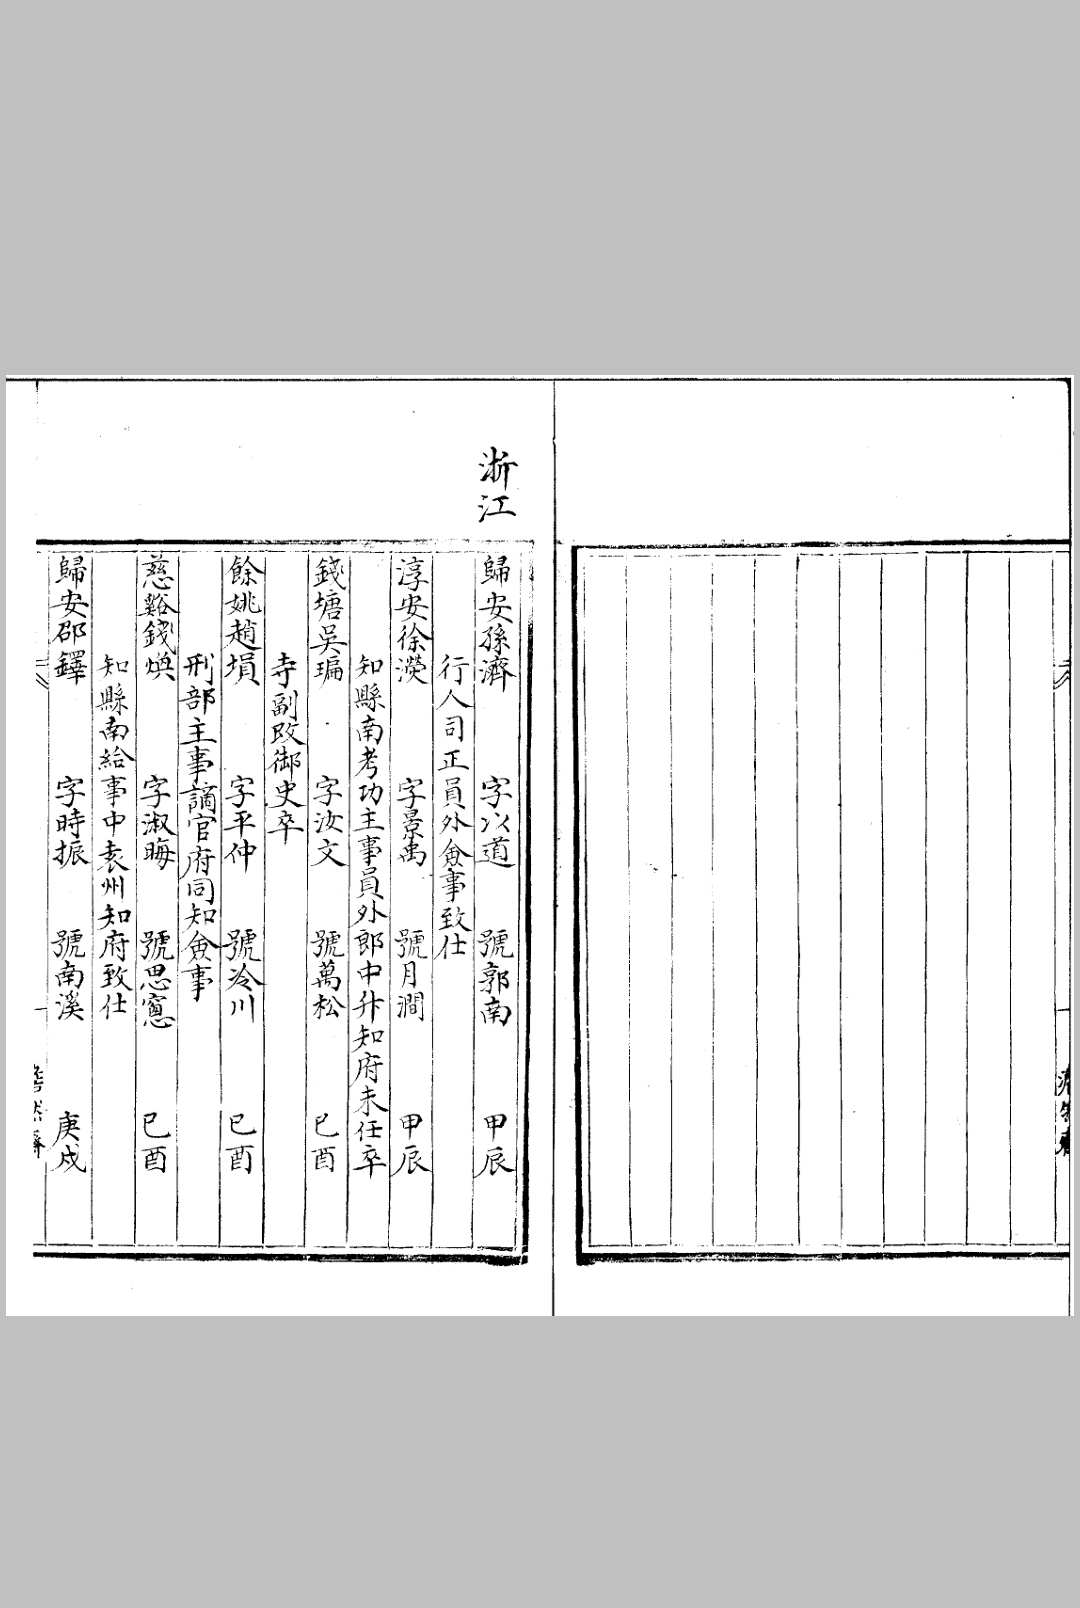 浙江
歸安孫濟 字以道 號郭南 甲辰
行人司正員外僉事致仕
淳安徐濙 字景禹 號月澗 甲辰
知縣南考功主事員外郎中升知府未任卒
錢塘吳㻞 字汝文 號萬松 已酉
寺副改御史卒
餘姚趙塤 字平仲 號冷川 已酉
刑部主事謫官府同知僉事
慈谿錢煥 字淑晦 號思寬 已酉
知縣南給事中袁州知府致仕
歸安邵鐸 字時振 號南溪 庚戍